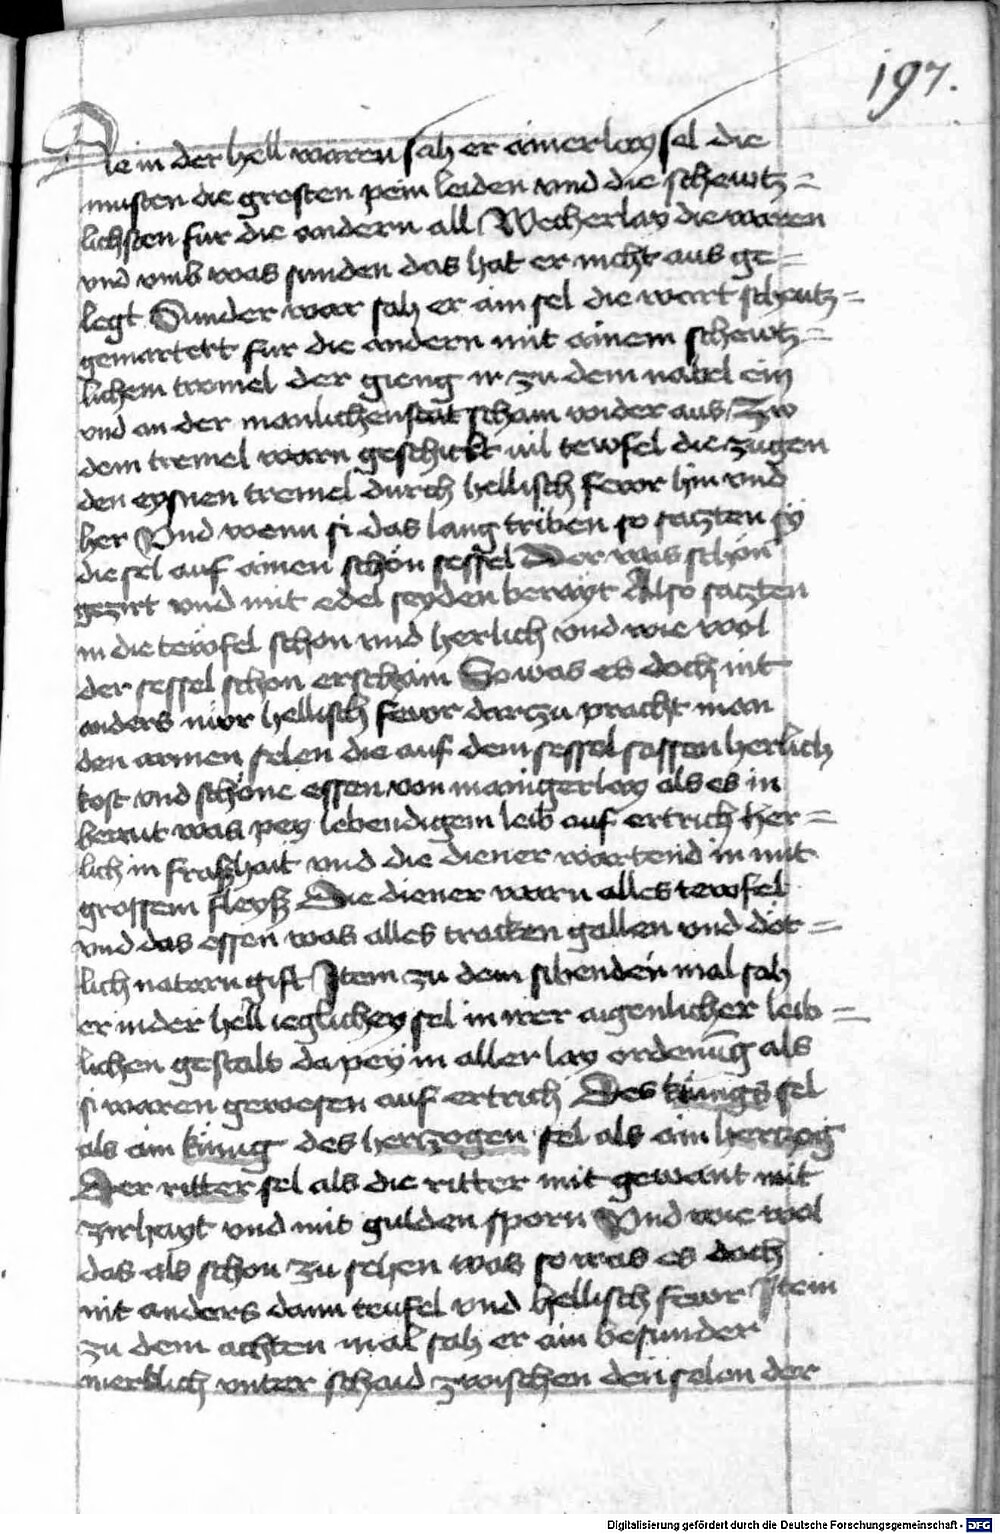 197.
Die in der hell waren sah er ainerlay sel die
musten die grosten pein leiden vnd die schewtz=
lichsten fur die andern all Wecherlay die waren
vnd vmb was sunden das hat er nicht aus ge=
legt Sunder war sah er ain sel die wart scheutz=
gemartert fur die andern mit ainem schewtz=
lichem tremel der gieng ir zu dem nabel ein
vnd an der manlichen stat scham wider aus Zw
dem tremel warn geschickt vil tewfel die zugen
den eysnen tremel durch hellisch fewr hin vnd
her Vnd wenn si das lang triben so saczten sy
die sel auf ainen schön sessel Der was schön
geziert vnd mit edel seyden berayt Also saczten
in die tewfel schon vnd herlich vnd wie wol
der sessel schon erschain So was es doch nit
anders nwr hellisch fewr darzu pracht man
den armen selen die auf dem sessel sassen herlich
kost vnd schöne essen von mangerlay als es in
berait was pey lebendigem leib auf ertrich her=
lich in fraßhait vnd die diener wartend in mit
grossem fleyß Die diener warn alles tewfel
vnd das essen was alles tracken gallen vnd döt=
lich natern gift Item zu dem sibenden mal sah
er in der hell ieglichey sel in irer aigenlicher leib=
lichen gestalt da pey in aller lay ordenung als
si waren gewesen auf ertrich Des künigs sel
als ain künig des herczogen sel als ain herczog
Der ritter sel als die ritter mit gewant mit
zirhayt vnd mit gulden sporn Vnd wie wol
das als schon zu sehen was so was es doch
nit anders dann teufel vnd hellisch fewr Item
zu dem achten mal sah er ain besunder
merklich vnter schaid zwischen den selen der
Digitalisierung gefördert durch die Deutsche Forschungsgemeinschaft - DFG